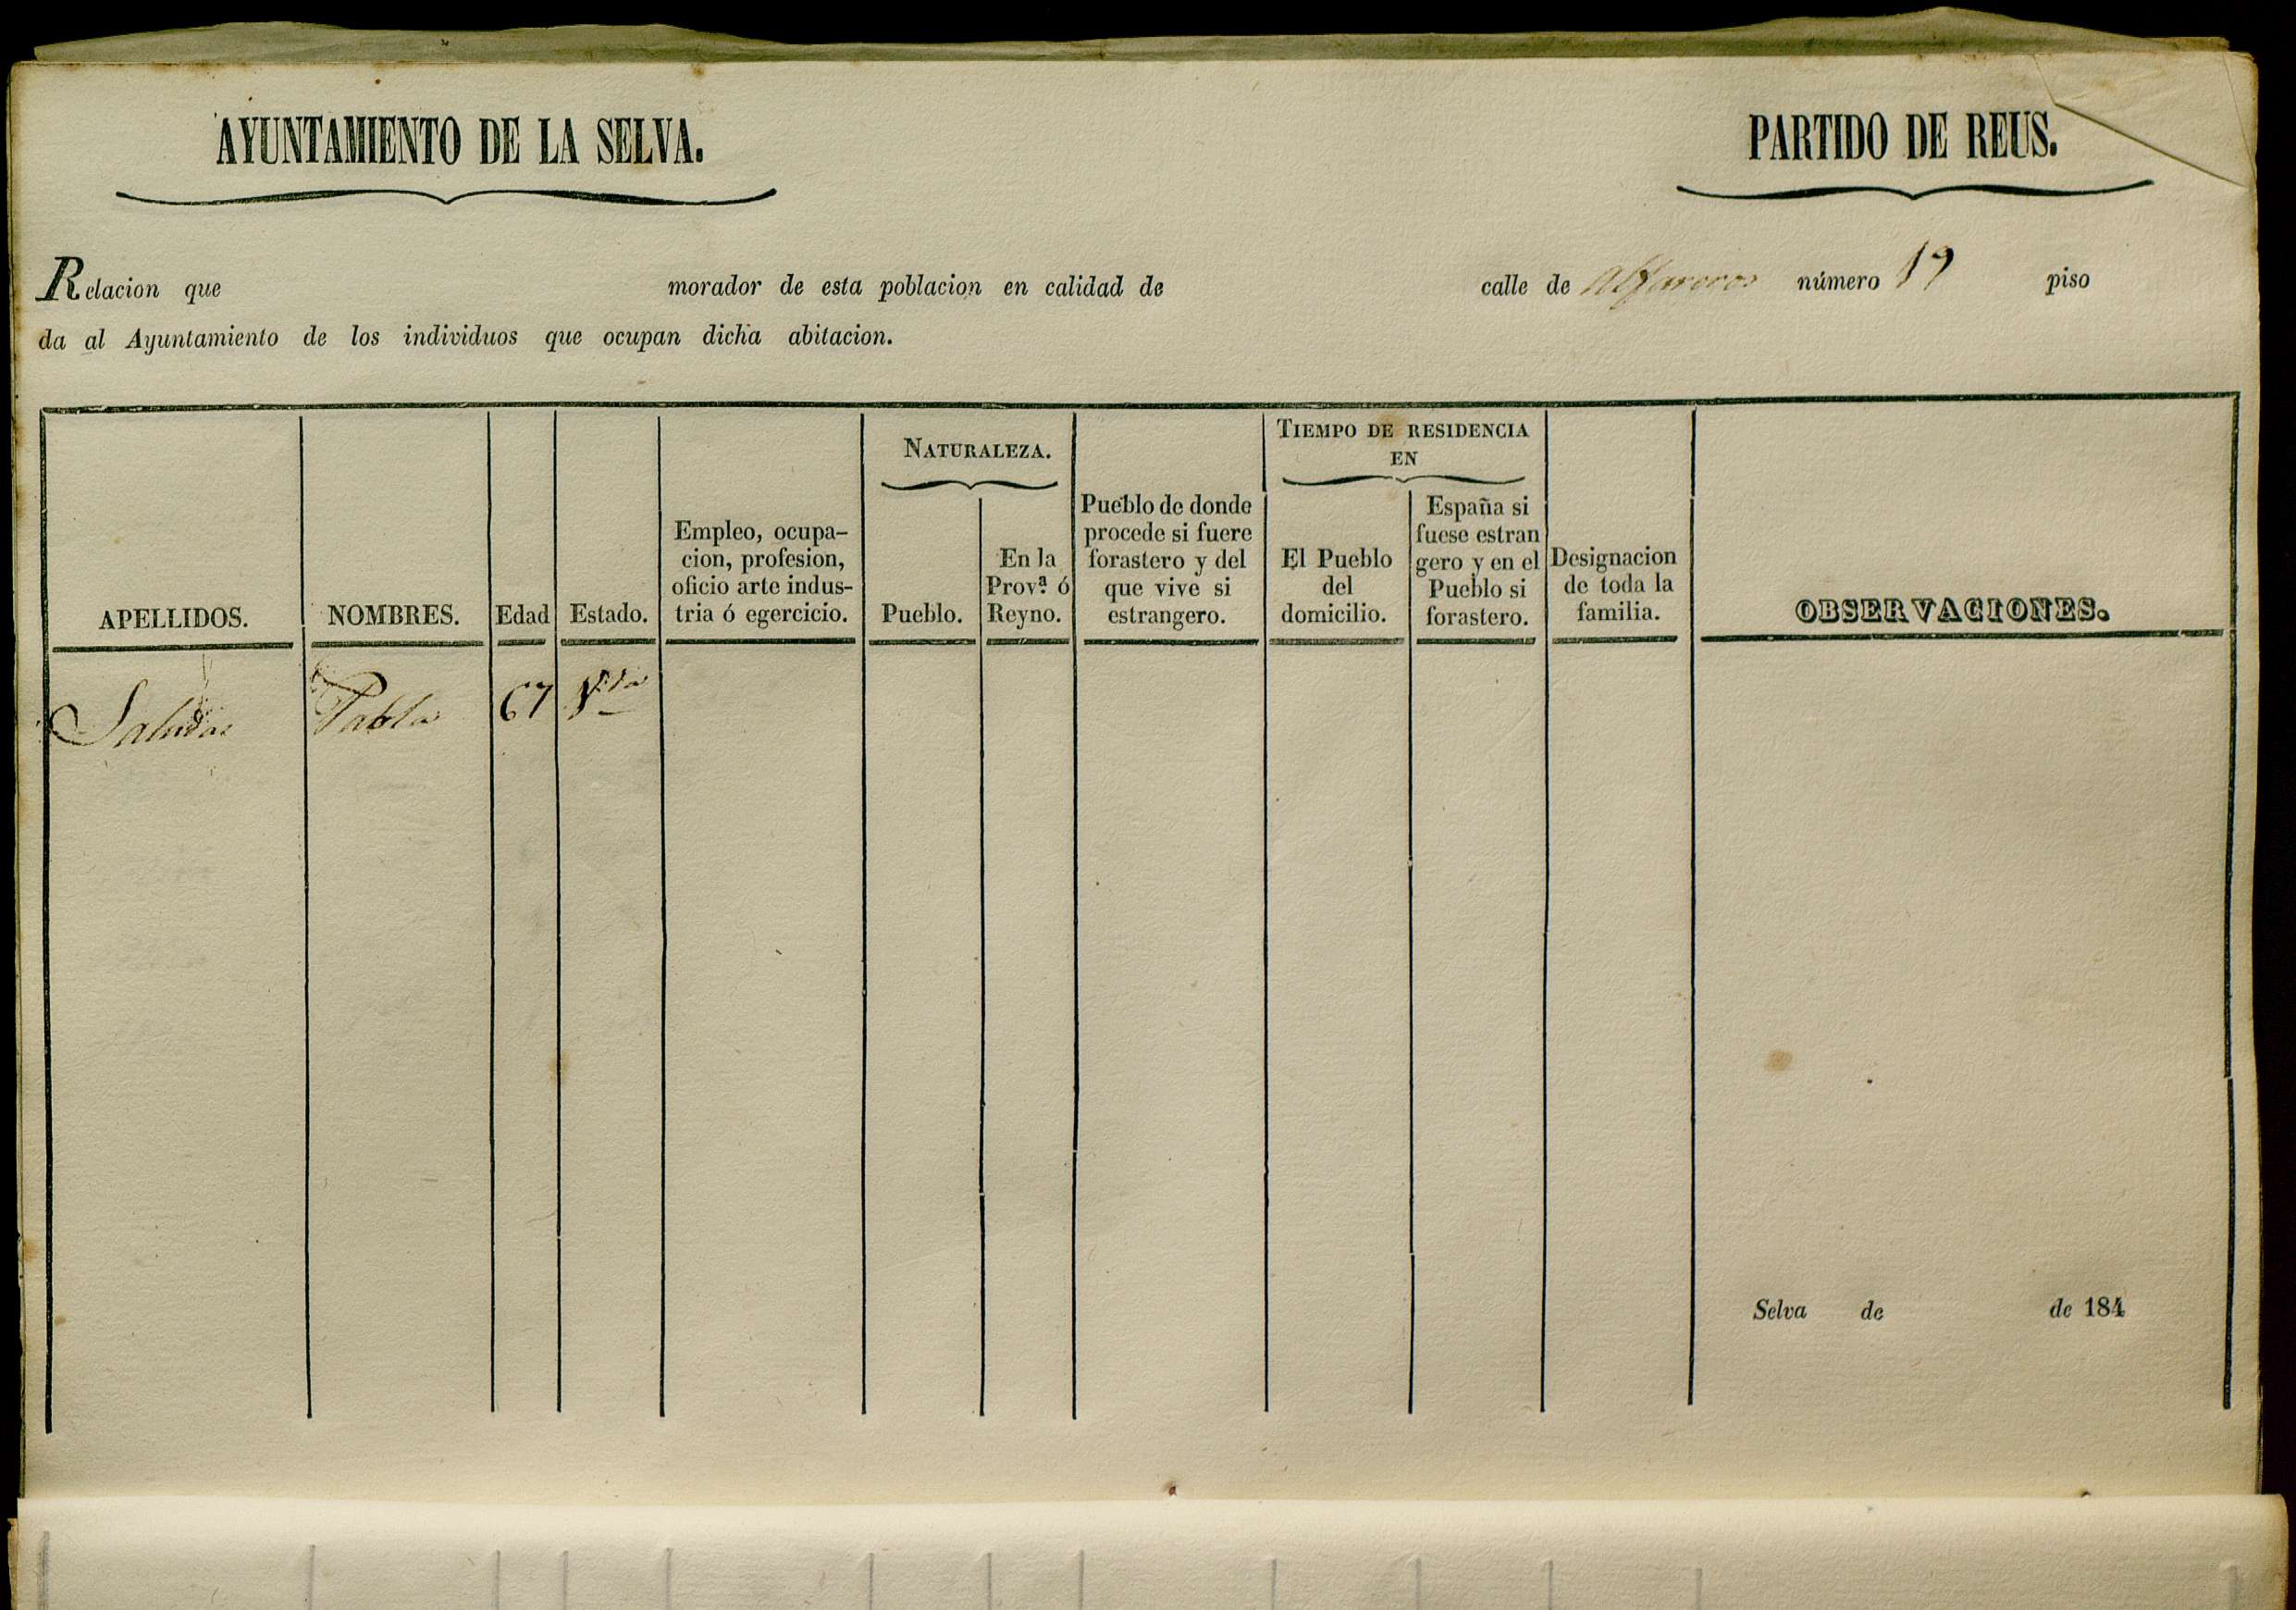 AYUNTAMIENTO DE LA SELVA.
PARTIDO DE REUS.
Relacion que morador de esta poblacion en calidad de calle de Alfareros número 19 piso
da al Ayuntamiento de los individuos que ocupan dicha abitacion.
APELLIDOS.
NOMBRES.
Edad
Estado.
Empleo, ocupa-
cion, profesion,
oficio arte indus-
tria ó egercicio.
NATURALEZA.
Pueblo.
En la
Prov.ª ó
Reyno.
Pueblo de donde
procede si fuere
forastero y del
que vive si
estrangero.
TIEMPO DE RESIDENCIA
EN
El Pueblo
del
domicilio.
España si
fuese estran
gero y en el
Pueblo si
forastero.
Designacion
de toda la
familia.
OBSERVACIONES.
Pablo 67 V.do
Selva de de 184